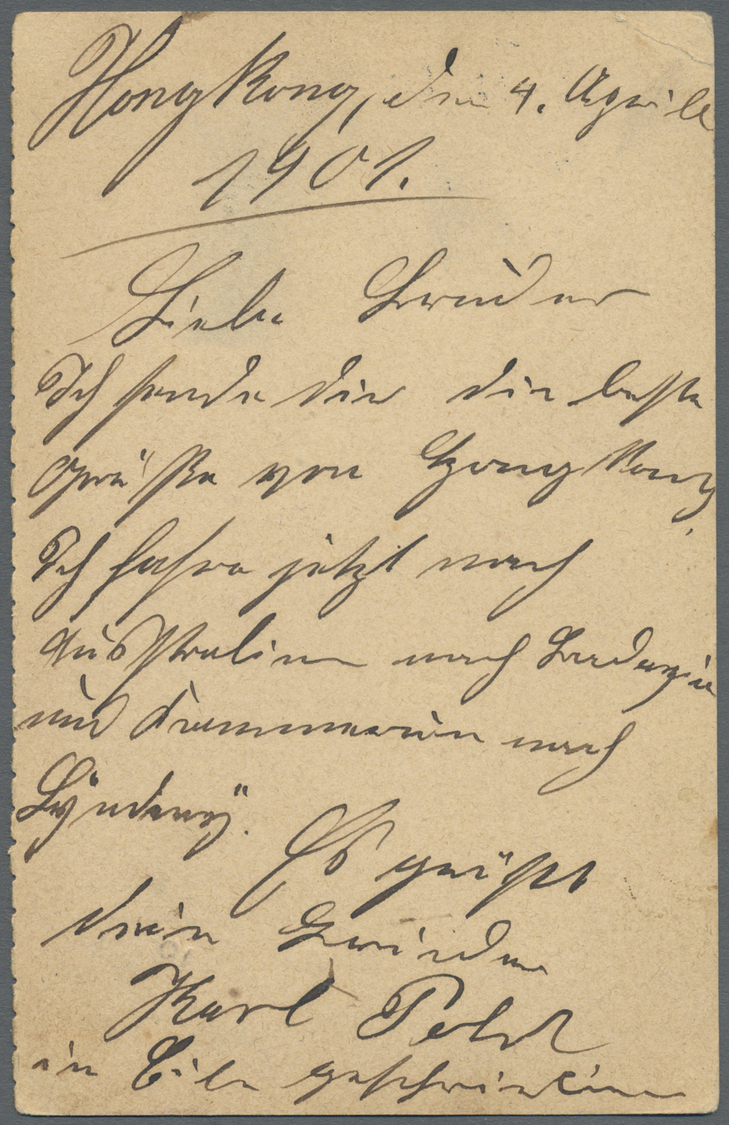 Hongkong, den 4. Aprill
1901.
Liebe Bruder
Ich sende dir die beste
Grüße von Hongkong
Ich fahre jetzt nach
Australien nach
und nach
Es grüßt
dein Bruder
Karl
in Eile geschrieben